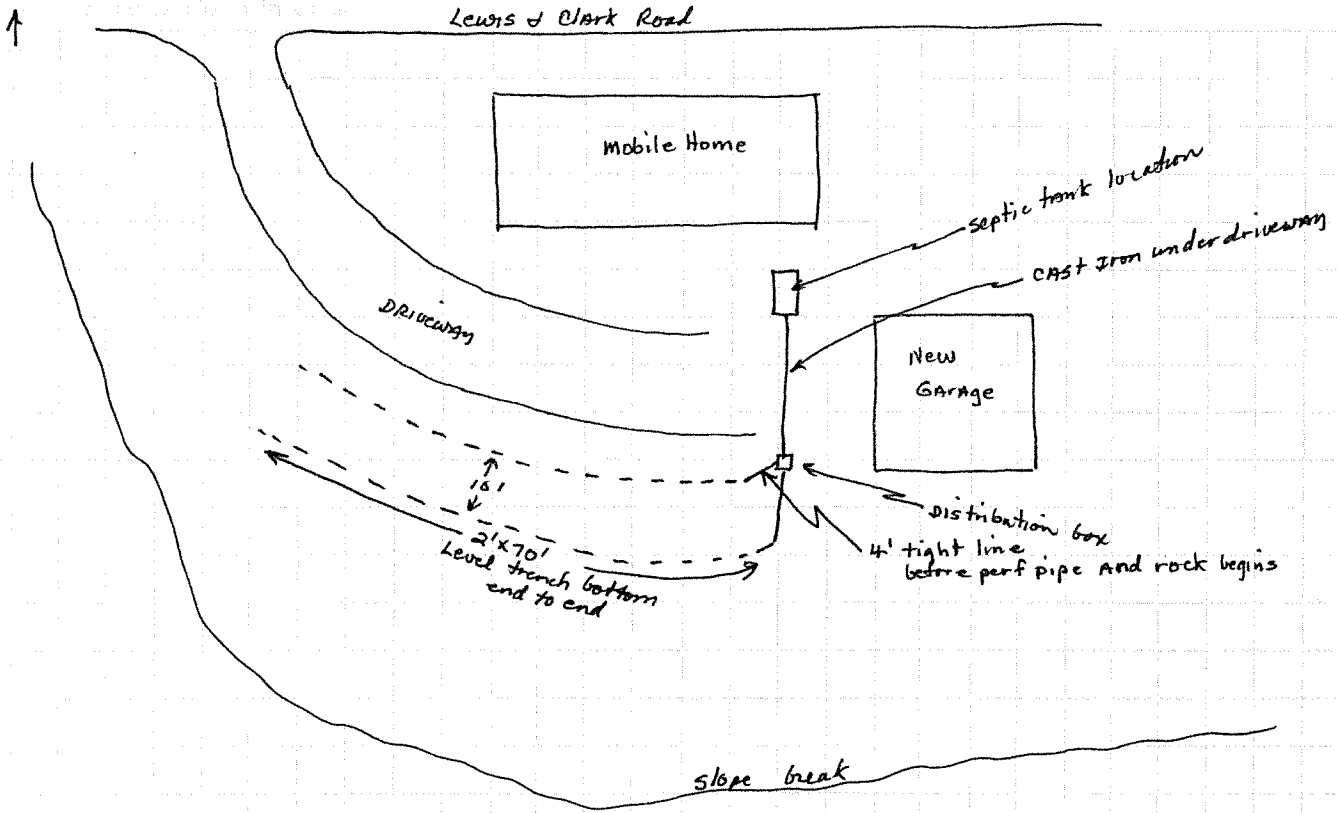 Lewis & Clark Road
Mobile Home
septic tank location
CAST Iron under driveway
DRIVEWAY
New
GArAge
10'
Distribution box
4' tight line
before perf pipe And rock begins
2'x70'
Level trench bottom
end to end
slope break